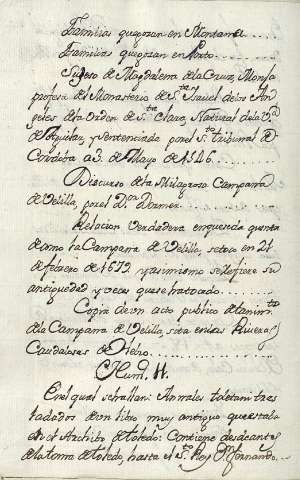 Familias que gozan en Montanा
Familias que gozan en Porto
Suceso de Magdalena de la Cruz, Monja
profesa del Monasterio de Sta. Isavel de los An
geles de la Orden de Sta. Clara, Natural de la Va.
de Aguilar, y sentenciada por el Sto. tribunal de
Cordova a 3. de Mayo de 1546
Discurso de la Milagrosa Campana
de Velilla, por el Dr. Dormer
Relacion verdadera en que se da quenta
de como la Campana de Velilla, se toco en 21
de febrero de 1679 y asi mismo se refiere su
antiguedad y veces que se ha tocado
Copia de un acto publico del
de la Campana de Velilla, sita en las Riveras
Caudalosas de Hebro
Num. 11.
En el qual se hallan: Annales toletanos tras
ladados de un libro muy antiguo que estaba
en el Archibo de toledo: Contiene desde antes
de la toma de toledo, hasta el Sto. Rey Dn. fernando